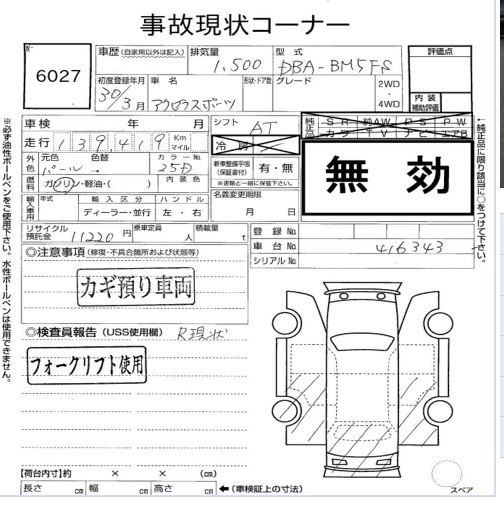 事故現状コーナー
6027
車歴 (自家用以外は記入)
排気量
型式
1,500
DBA-BM5FS
評価点
初度登録年月
車名
形状・ドア数
グレード
2WD
・
4WD
30/3月
アクセラスポーツ
内装
補助
※必ず油性ボールペンをご使用下さい。水性ボールペンは使用できません。
車検 年 月
シフト
AT
純正品
SR 純AW PS PW
カワ TV ナビ エアB
走行 139,419 Km マイル
冷房
無効
外色
元色 色替
パール →
カラーNo.
25D
新車整備手帳
(保証書付)
有・無
※書類と一緒に保管下さい。
燃料
ガソリン・軽油・( )
内装色
名義変更期限
月 日
輸入車用
年式
輸入区分
ハンドル
ディーラー・並行
左・右
←純正品に限り該当に○をつけて下さい。
リサイクル預託金
11220円
乗車定員
人
積載量
t
登録No.
車台No.
416343
シリアルNo.
◎注意事項 (修復・不具合箇所および状態等)
カギ預り車両
◎検査員報告 (USS使用欄)
R現状
フォークリフト使用
【荷台内寸】約 × × (cm)
長さ cm 幅 cm 高さ cm
←(車検証上の寸法)
スペア